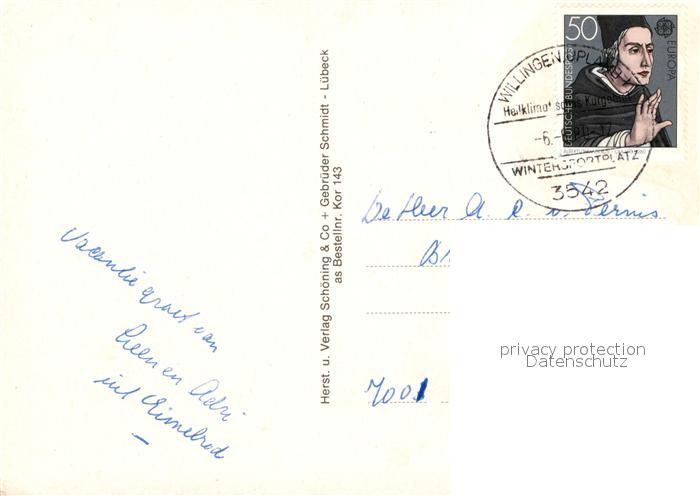 Vacantie groet van
Leen en Adri
uit Eimelrod
Herst. u. Verlag Schöning & Co + Gebrüder Schmidt - Lübeck
as Bestellnr. Kor 143
50
EUROPA
DEUTSCHE BUNDESPOST
WILLINGEN, UPLAND
Heilklimatisches Kurgebiet
-6.
WINTERSPORTPLATZ
3542
De Heer A. C. v.
7001
privacy protection
Datenschutz